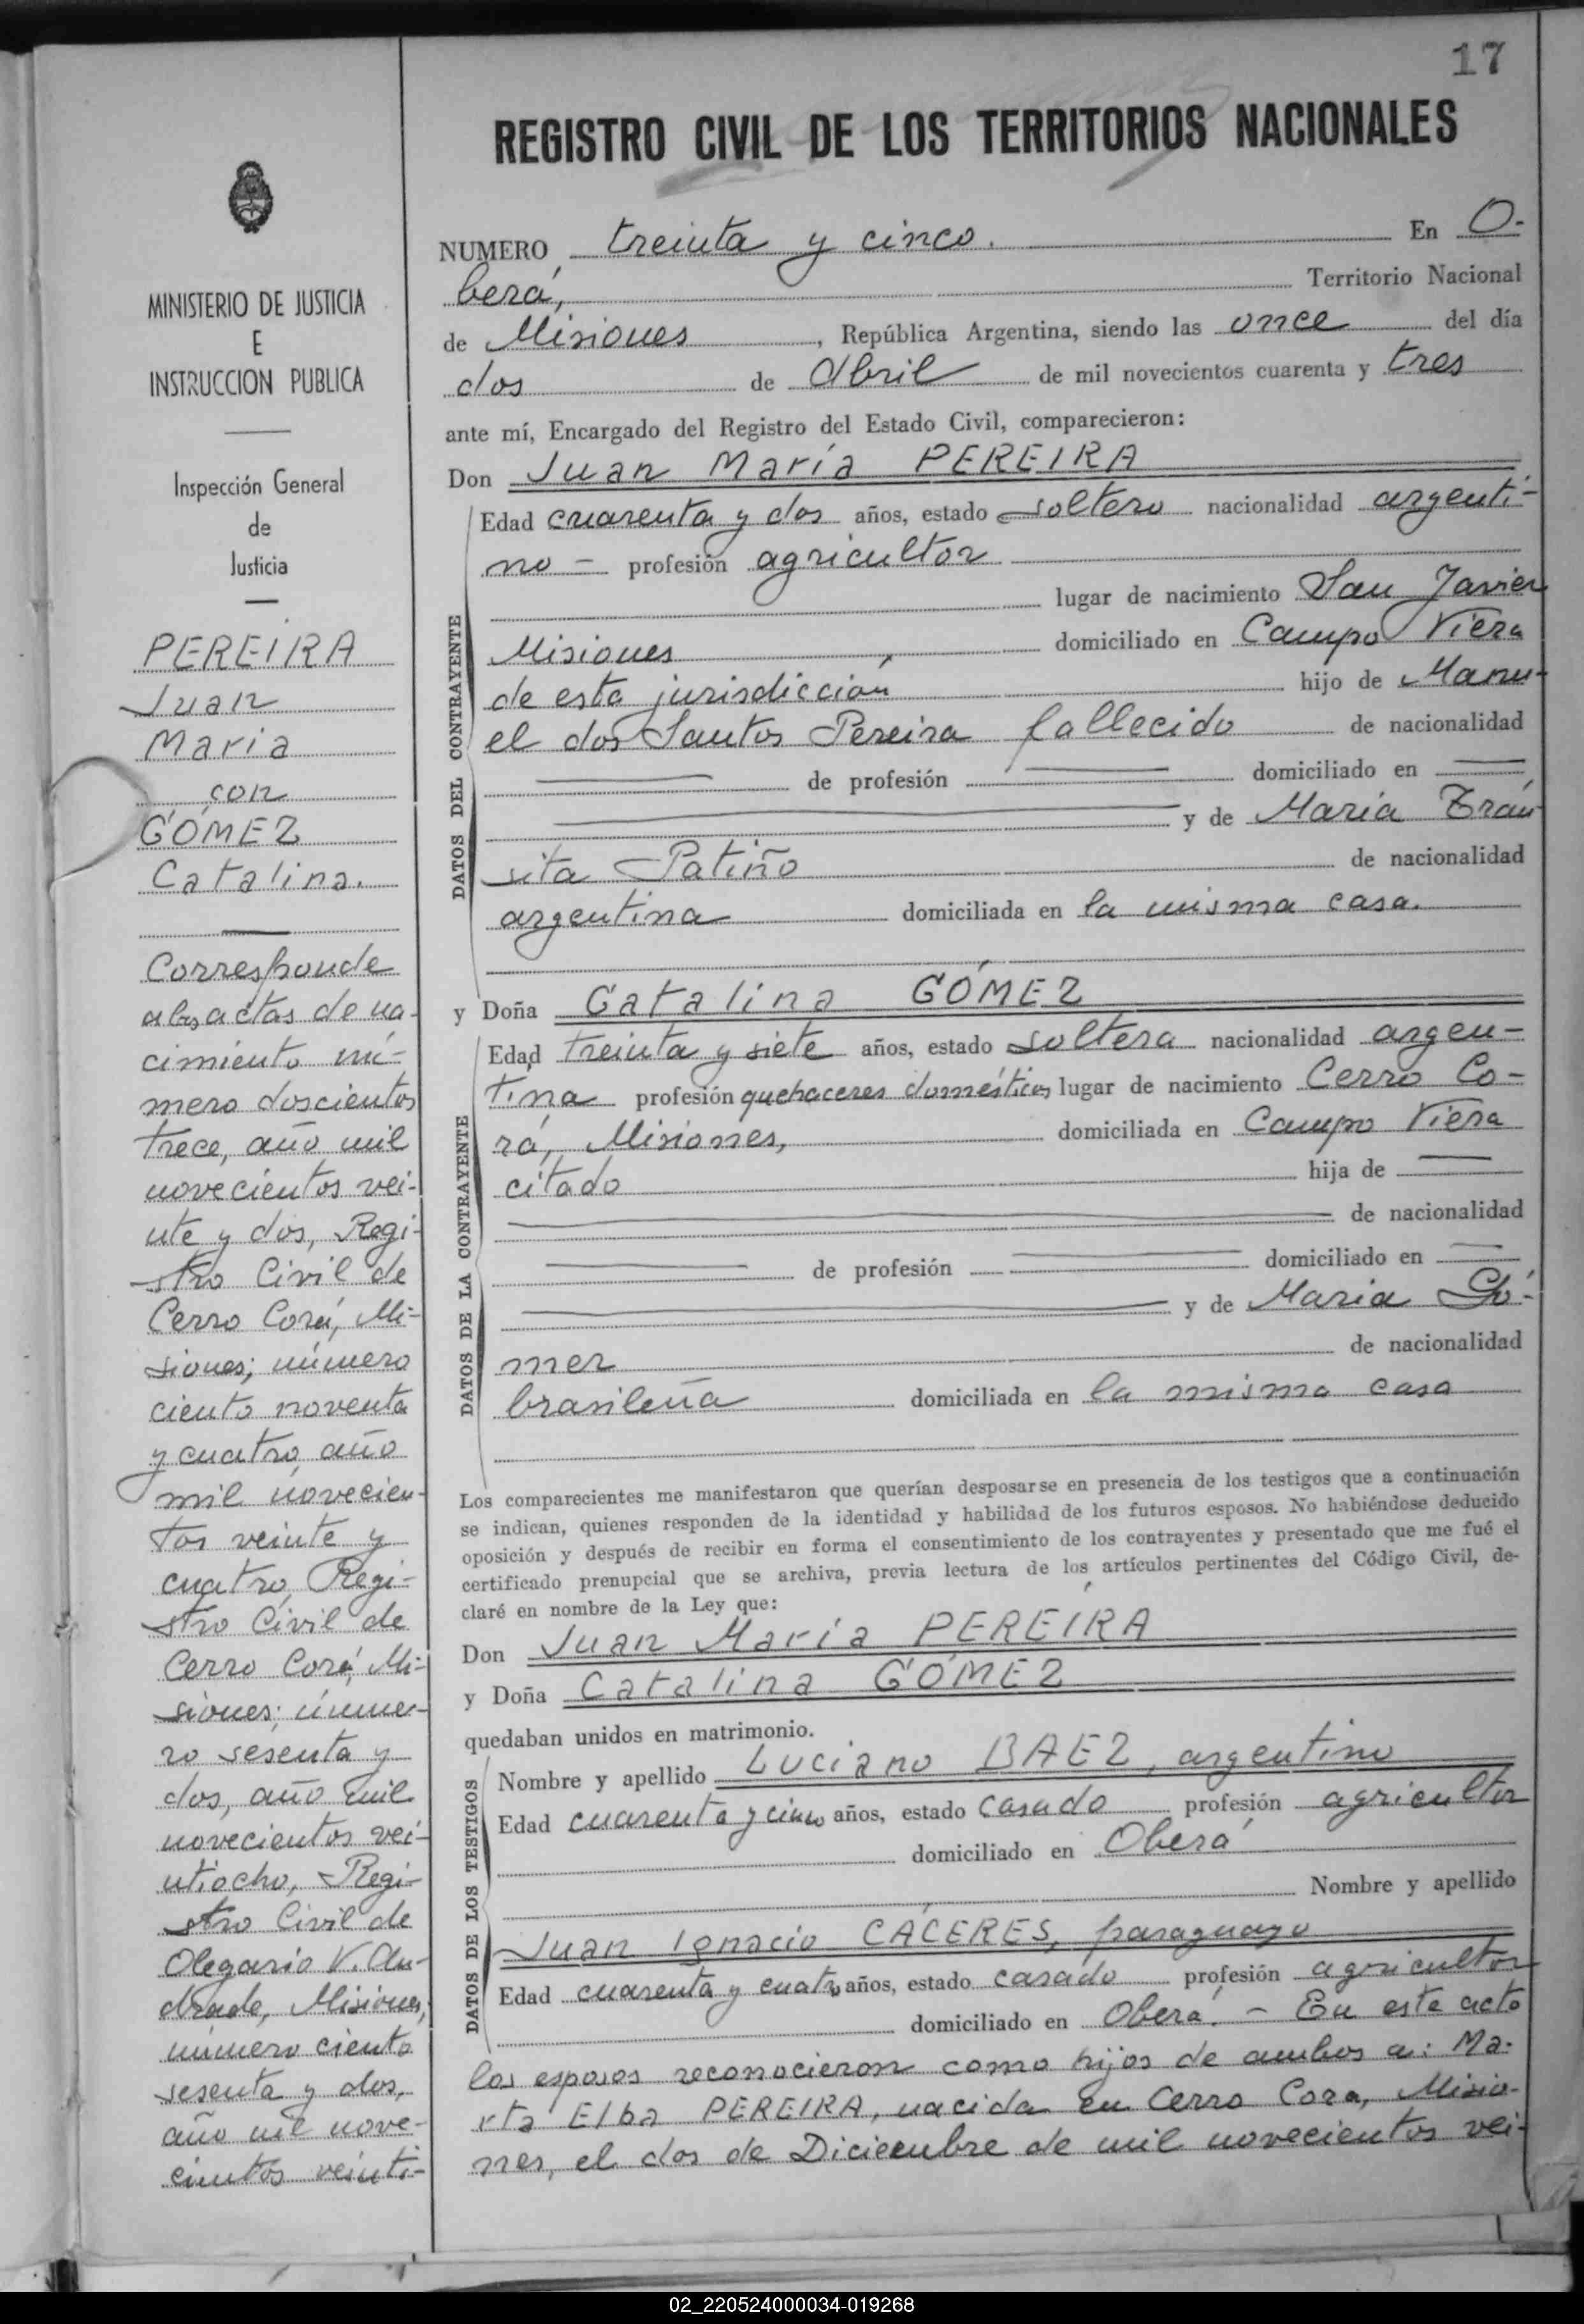 17
REGISTRO CIVIL DE LOS TERRITORIOS NACIONALES
MINISTERIO DE JUSTICIA
E
INSTRUCCION PUBLICA
Inspección General
de
Justicia
PEREIRA
Juan
María
con
GÓMEZ
Catalina.
Corresponde
a las actas de na-
cimiento nú-
mero doscientos
trece, año mil
novecientos vei-
nte y dos, Regi-
stro Civil de
Cerro Corá, Mi-
siones; número
ciento noventa
y cuatro, año
mil novecien-
tos veinte y
cuatro, Regi-
stro Civil de
Cerro Corá, Mi-
siones; núme-
ro sesenta y
dos, año mil
novecientos vei-
ntiocho, Regi-
stro Civil de
Olegario V. An-
drade, Misiones,
número ciento
sesenta y dos,
año mil nove-
cientos veinti-
NUMERO treinta y cinco. En O-
berá, Territorio Nacional
de Misiones, República Argentina, siendo las once del día
dos de Abril de mil novecientos cuarenta y tres
ante mí, Encargado del Registro del Estado Civil, comparecieron:
Don Juan María PEREIRA
DATOS DEL CONTRAYENTE
Edad cuarenta y dos años, estado soltero nacionalidad argenti-
no - profesión agricultor
lugar de nacimiento San Javier
Misiones, domiciliado en Campo Viera
de esta jurisdicción hijo de Manu-
el dos Santos Pereira fallecido de nacionalidad
de profesión domiciliado en
y de María Trán-
sita Patiño de nacionalidad
argentina domiciliada en la misma casa.
y Doña Catalina GÓMEZ
DATOS DE LA CONTRAYENTE
Edad treinta y siete años, estado soltera nacionalidad argen-
tina profesión quehaceres domésticos lugar de nacimiento Cerro Co-
rá, Misiones, domiciliada en Campo Viera
citado hija de
de nacionalidad
de profesión domiciliado en
y de María Gó-
mez de nacionalidad
brasileña domiciliada en la misma casa
Los comparecientes me manifestaron que querían desposarse en presencia de los testigos que a continuación
se indican, quienes responden de la identidad y habilidad de los futuros esposos. No habiéndose deducido
oposición y después de recibir en forma el consentimiento de los contrayentes y presentado que me fué el
certificado prenupcial que se archiva, previa lectura de los artículos pertinentes del Código Civil, de-
claré en nombre de la Ley que:
Don Juan María PEREIRA
y Doña Catalina GÓMEZ
quedaban unidos en matrimonio.
DATOS DE LOS TESTIGOS
Nombre y apellido Luciano BAEZ, argentino
Edad cuarenta y cinco años, estado casado profesión agricultor
domiciliado en Oberá
Nombre y apellido
Juan Ignacio CÁCERES, paraguayo
Edad cuarenta y cuatro años, estado casado profesión agricultor
domiciliado en Oberá. - En este acto
los esposos reconocieron como hijos de ambos a: Ma-
rta Elba PEREIRA, nacida en Cerro Cora, Misio-
nes, el dos de Diciembre de mil novecientos vei-
02_220524000034-019268